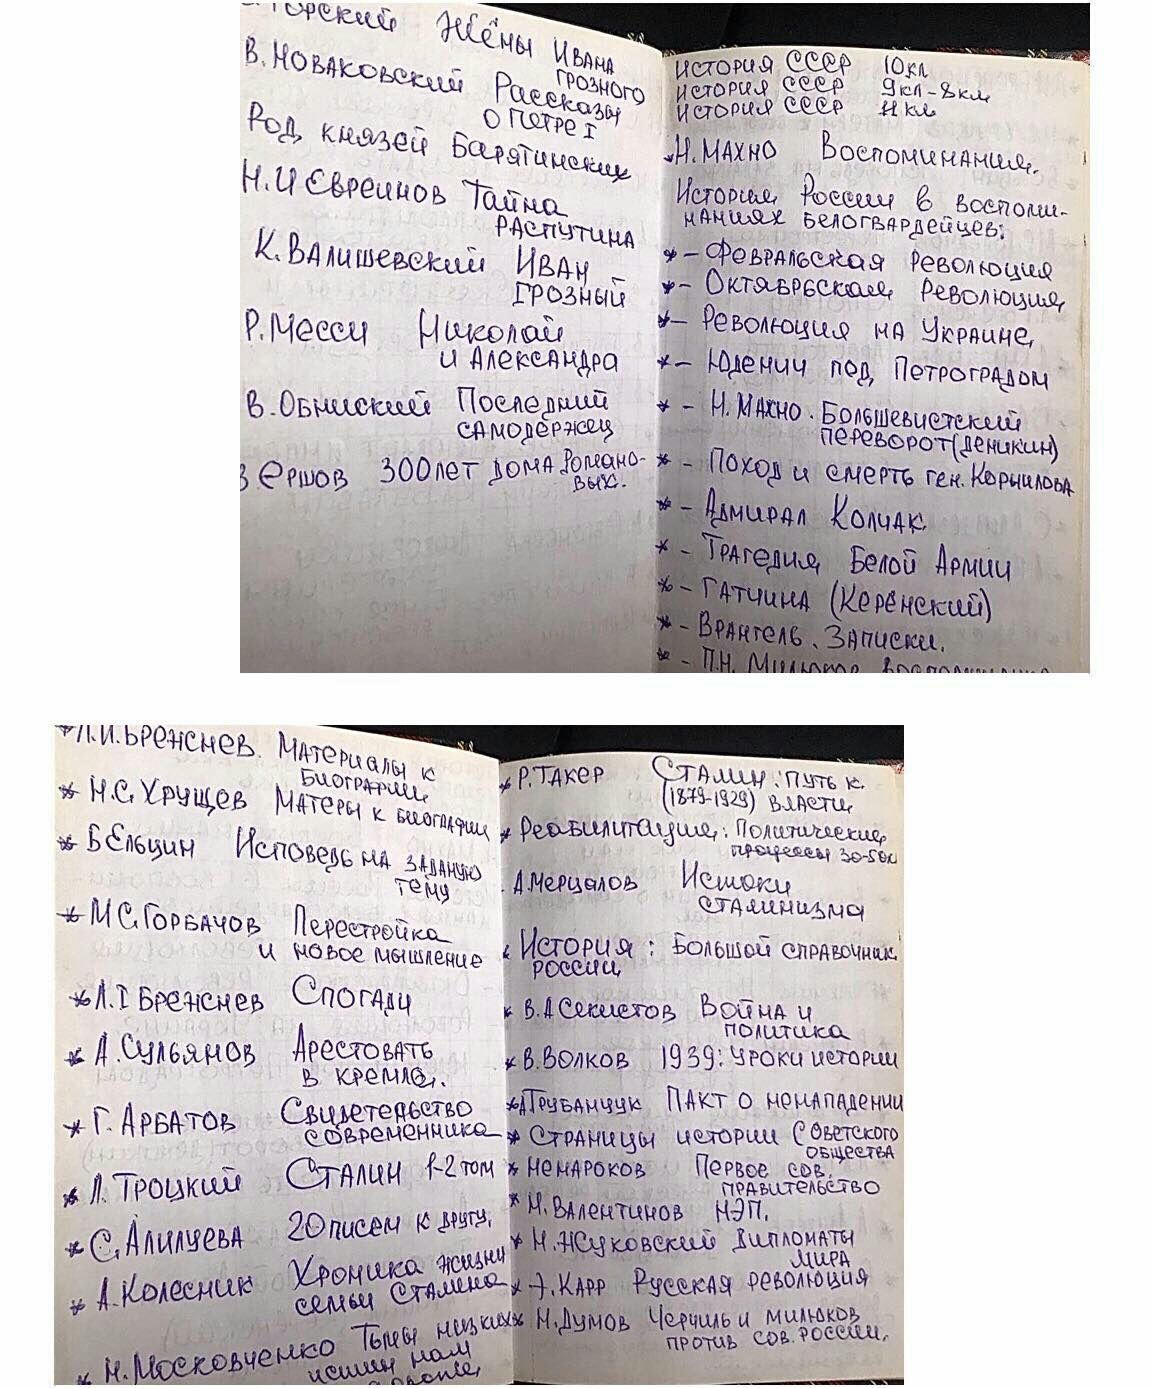 Жёны Ивана
Грозного
В. Новаковский Рассказы
о Петре I
Род князей Барятинских
Н.И Евреинов Тайна
Распутина
К. Валишевский Иван
Грозный
Р. Месси Николай
и Александра
В. Обниский Последний
самодержец
Ершов 300 лет дома Романо-
вых.
История СССР 10 кл
История СССР 9кл-8кл
История СССР 11 кл
Н. Махно Воспоминания.
История России в воспоми-
наниях белогвардейцев:
* - Февральская революция
* - Октябрьская революция
* - Революция на Украине
* - Юденич под Петроградом
* - Н. Махно. Большевистский
переворот (Деникин)
* - Поход и смерть ген. Корнилова
* - Адмирал Колчак
* - Трагедия Белой Армии
* - Гатчина (Керенский)
* - Врангель. Записки.
* - П.Н. Милюков
Л.И. Брежнев. Материалы к
биографии
* Н.С. Хрущев Матеры к биографии
* Б Ельцин Исповедь на заданую
тему
* М С. Горбачов Перестройка
и новое мышление
* Л.І Брежнев Спогади
* А. Сульянов Арестовать
в Кремле.
* Г. Арбатов Свидетельство
современника
* Л. Троцкий Сталин 1-2 том
* С. Алилуева 20 писем к другу.
* А. Колесник Хроника жизни
семьи Сталина
* Н. Московченко Тьмы низких
истин нам
* Р. Такер Сталин: путь к
(1879-1929) власти
* Реабилитация: Политические
процессы 30-50х
А. Мерцалов Истоки
сталинизма
История: Большой справочник
России
* В. А Секистов Война и
политика
* В. Волков 1939: Уроки истории
* А Трубайчук Пакт о ненападении
* Страницы истории Советского
общества
* Ненароков Первое сов.
правительство
* Н. Валентинов НЭП.
* Н. Жуковский Дипломаты
мира
* Э. Карр Русская революция
* Н. Думов Черчиль и Милюков
против сов. России.